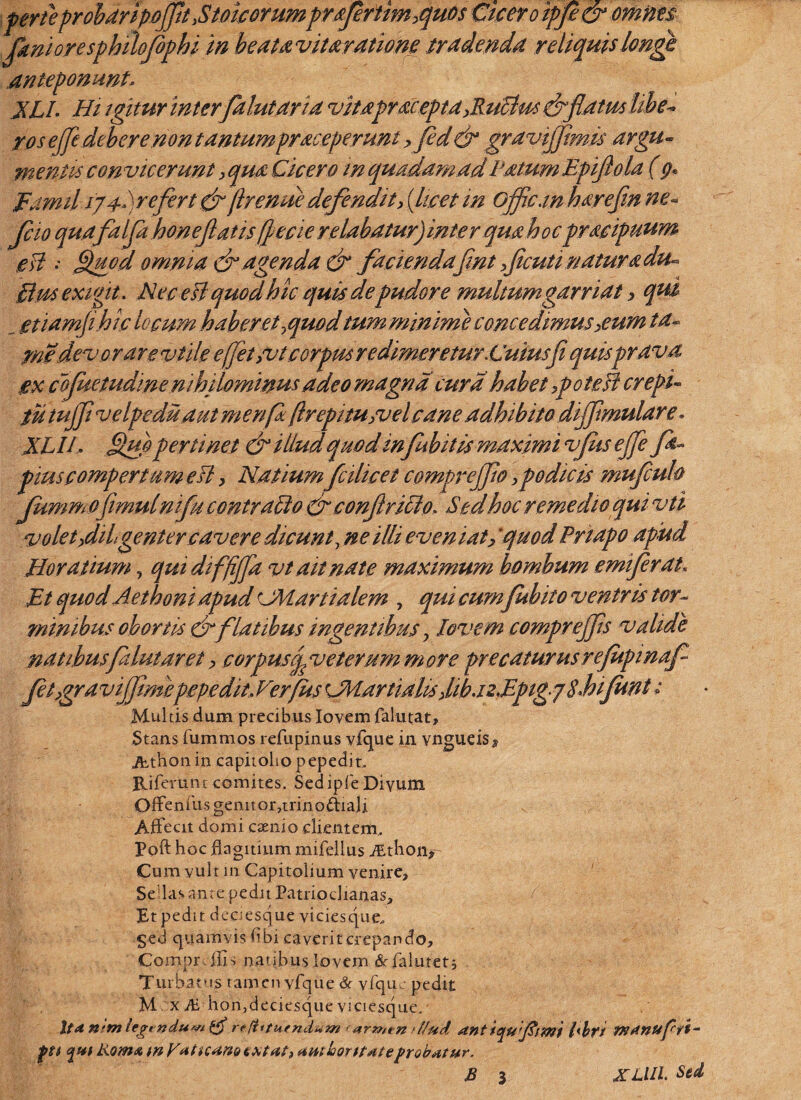 perte probari possit, Stoicorum præsertim, quos Cicero ipse & omnes
saniores philosophi in beatæ vitæ ratione tradenda reliquis longe
anteponunt.
XLI. Hi igitur inter salutaria vitæ præcepta, Ructus & flatus libe-
ros esse debere non tantum præceperunt, sed & gravissimis argu-
mentis convicerunt, quæ Cicero in quadam ad Pætum Epistola (9.
Famil 174.) refert & strenue defendit, (licet in Offic. in hæresin ne-
scio qua falsa honestatis specie relabatur) inter quæ hoc præcipuum
est: Quod omnia & agenda & facienda sint, sicuti naturæ du-
ctus exigit. Nec est quod hic quis de pudore multum garriat, qui
etiamsi hic locum haberet, quod tum minime concedimus, eum ta-
mē devorare vtile esset, vt corpus redimeretur. Cuius si quis prava
ex cōsuetudine nihilominus adeo magnâ curâ habet, potest crepi-
tū tussi vel pedū aut mensæ strepitu, vel cane adhibito dissimulare.
XLII. Quo pertinet & illud quod in subitis maximi vsus esse sæ-
pius compertum est, Natium scilicet compressio, podicis musculo
summo simul nisu contracto & constricto. Sed hoc remedio qui vti
volet, diligenter cavere dicunt, ne illi eveniat, quod Priapo apud
Horatium, qui diffissa vt ait nate maximum bombum emiserat.
Et quod Aethoni apud Martialem, qui cum subito ventris tor-
minibus obortis & flatibus ingentibus, Iovem compressis valide
natibus salutaret, corpusq́; veterum more precaturus resupinas-
set, gravissime pepedit. Versus Martialis, lib. 12. Epig. 78. hi sunt:
Multis dum precibus Iovem salutat,
Stans summos resupinus vsque in vngueis,
Æthon in capitolio pepedit.
Riserunt comites. Sed ipse Divum
Offensus genitor, trinoctiali
Affecit domi cænio clientem.
Post hoc flagitium misellus Æthon,
Cum vult in Capitolium venire,
Sellas ante pedit Patrioclianas,
Et pedit deciesque viciesque.
Sed quamvis sibi caverit crepando,
Compressis natibus Iovem & salutet;
Turbatus tamen vsque & vsque pedit
M x Æ hon, deciesque viciesque.
Ita nim legendum & restituendum carmen illud antiquissimi libri manuscri-
pti qui Romæ in Vaticano extat, authoritate probatur.
B 3 XLIII. Sed